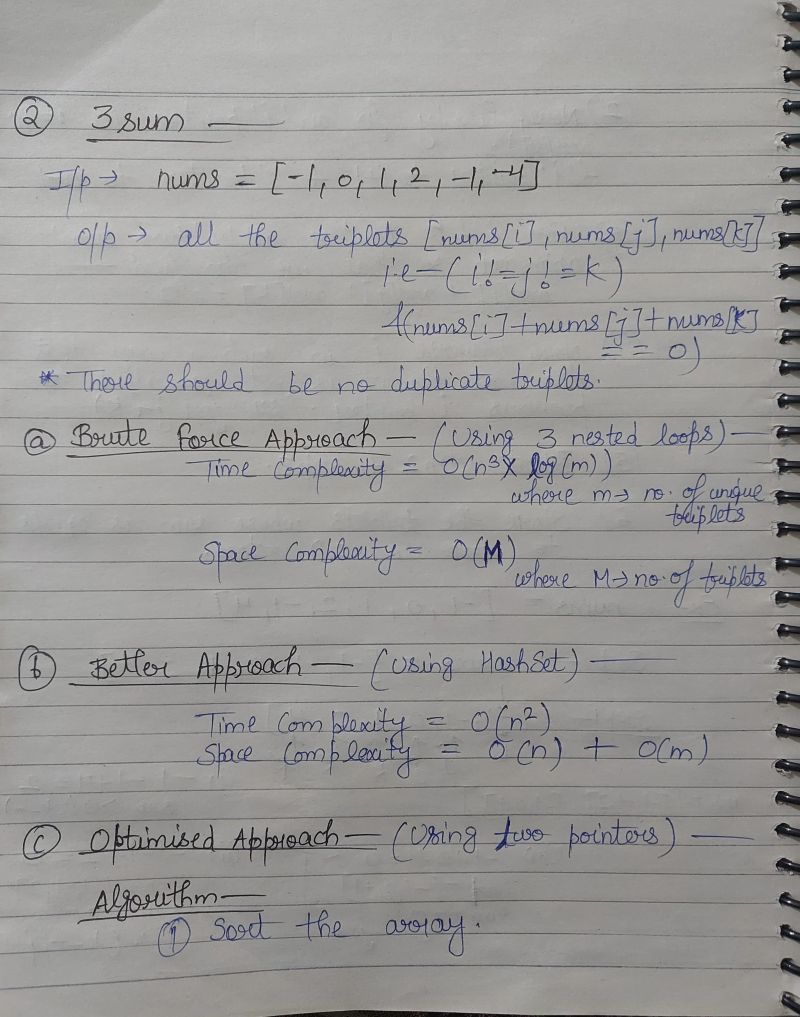 ② 3 sum —
I/p → nums = [-1, 0, 1, 2, -1, -4]
O/p → all the triplets [nums[i], nums[j], nums[k]]
i.e — (i != j != k)
&(nums[i] + nums[j] + nums[k]
== 0)
* There should be no duplicate triplets.
ⓐ Brute Force Approach — (Using 3 nested loops) —
Time Complexity = O(n³ × log(m))
where m → no. of unique
triplets
Space Complexity = O(M)
where M → no. of triplets
ⓑ Better Approach — (Using HashSet) —
Time Complexity = O(n²)
Space Complexity = O(n) + O(m)
ⓒ Optimised Approach — (Using two pointers) —
Algorithm —
① Sort the array.